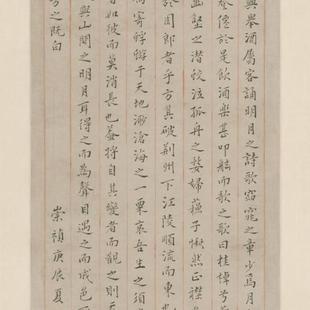 興舉酒屬客誦明月之詩歌窈窕之章少焉月
登僊於是飲酒樂甚叩舷而歌之歌曰桂棹兮
幽壑之潛蛟泣孤舟之嫠婦蘇子愀然正襟
於周郎者乎方其破荊州下江陵順流而東也
屬寄蜉蝣于天地渺滄海之一粟哀吾生之須
者如彼而莫消長也蓋將自其變者而觀之則天
與山間之明月耳得之而為聲目遇之而成色
方之既白
崇禎庚辰夏